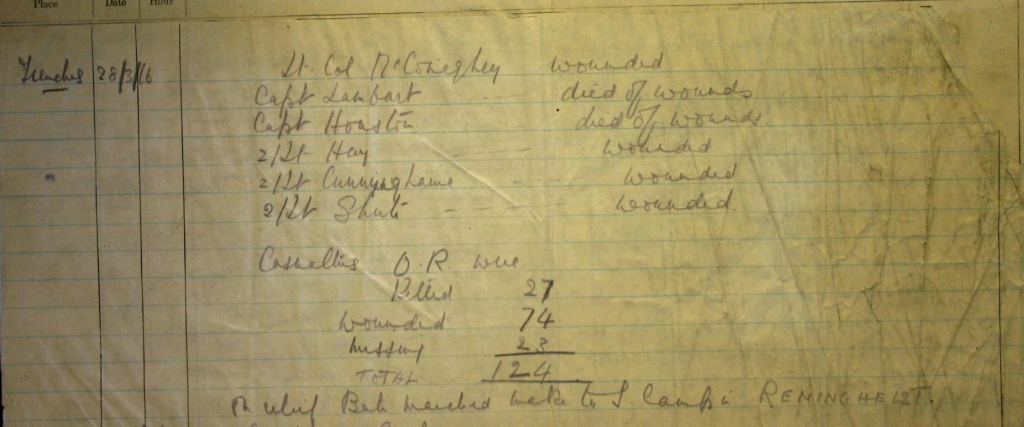 Place Date Hour
Trenches 28/3/16 Lt. Col McConeghey wounded
Capt Lambart died of wounds
Capt Houston died of wounds
2/Lt Hay wounded
2/Lt Cunninghame wounded
2/Lt Shute wounded
Casualties O.R. were
Killed 27
Wounded 74
Missing 23
TOTAL 124
On relief Batn marched back to Camp in RENINGHELST.